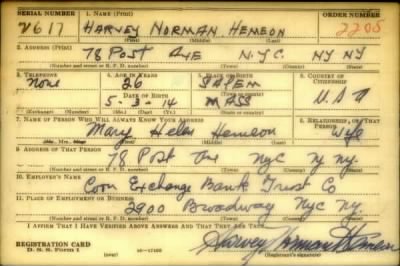 SERIAL NUMBER 1. NAME (Print) ORDER NUMBER
V617 HARVEY NORMAN HEMEON 2205
(First) (Middle) (Last)
2. ADDRESS (Print)
78 POST AVE N.Y.C NY NY
(Number and street or R. F. D. number) (Town) (County) (State)
3. TELEPHONE 4. AGE IN YEARS 5. PLACE OF BIRTH 6. COUNTRY OF CITIZENSHIP
NONE 26 SALEM
DATE OF BIRTH (Town or county)
5-3-14 MASS U.S.A
(Exchange) (Number) (Mo.) (Day) (Yr.) (State or country)
7. NAME OF PERSON WHO WILL ALWAYS KNOW YOUR ADDRESS 8. RELATIONSHIP OF THAT PERSON
Mary Helen Hemeon Wife
(Mr., Mrs., Miss) (First) (Middle) (Last)
9. ADDRESS OF THAT PERSON
78 Post Ave NYC NY NY.
(Number and street or R. F. D. number) (Town) (County) (State)
10. EMPLOYER'S NAME
Corn Exchange Bank Trust Co
11. PLACE OF EMPLOYMENT OR BUSINESS
2900 Broadway NYC NY.
(Number and street or R. F. D. number) (Town) (County) (State)
I AFFIRM THAT I HAVE VERIFIED ABOVE ANSWERS AND THAT THEY ARE TRUE.
REGISTRATION CARD
D. S. S. Form 1 Harvey Norman Hemeon
(Registrant's signature)